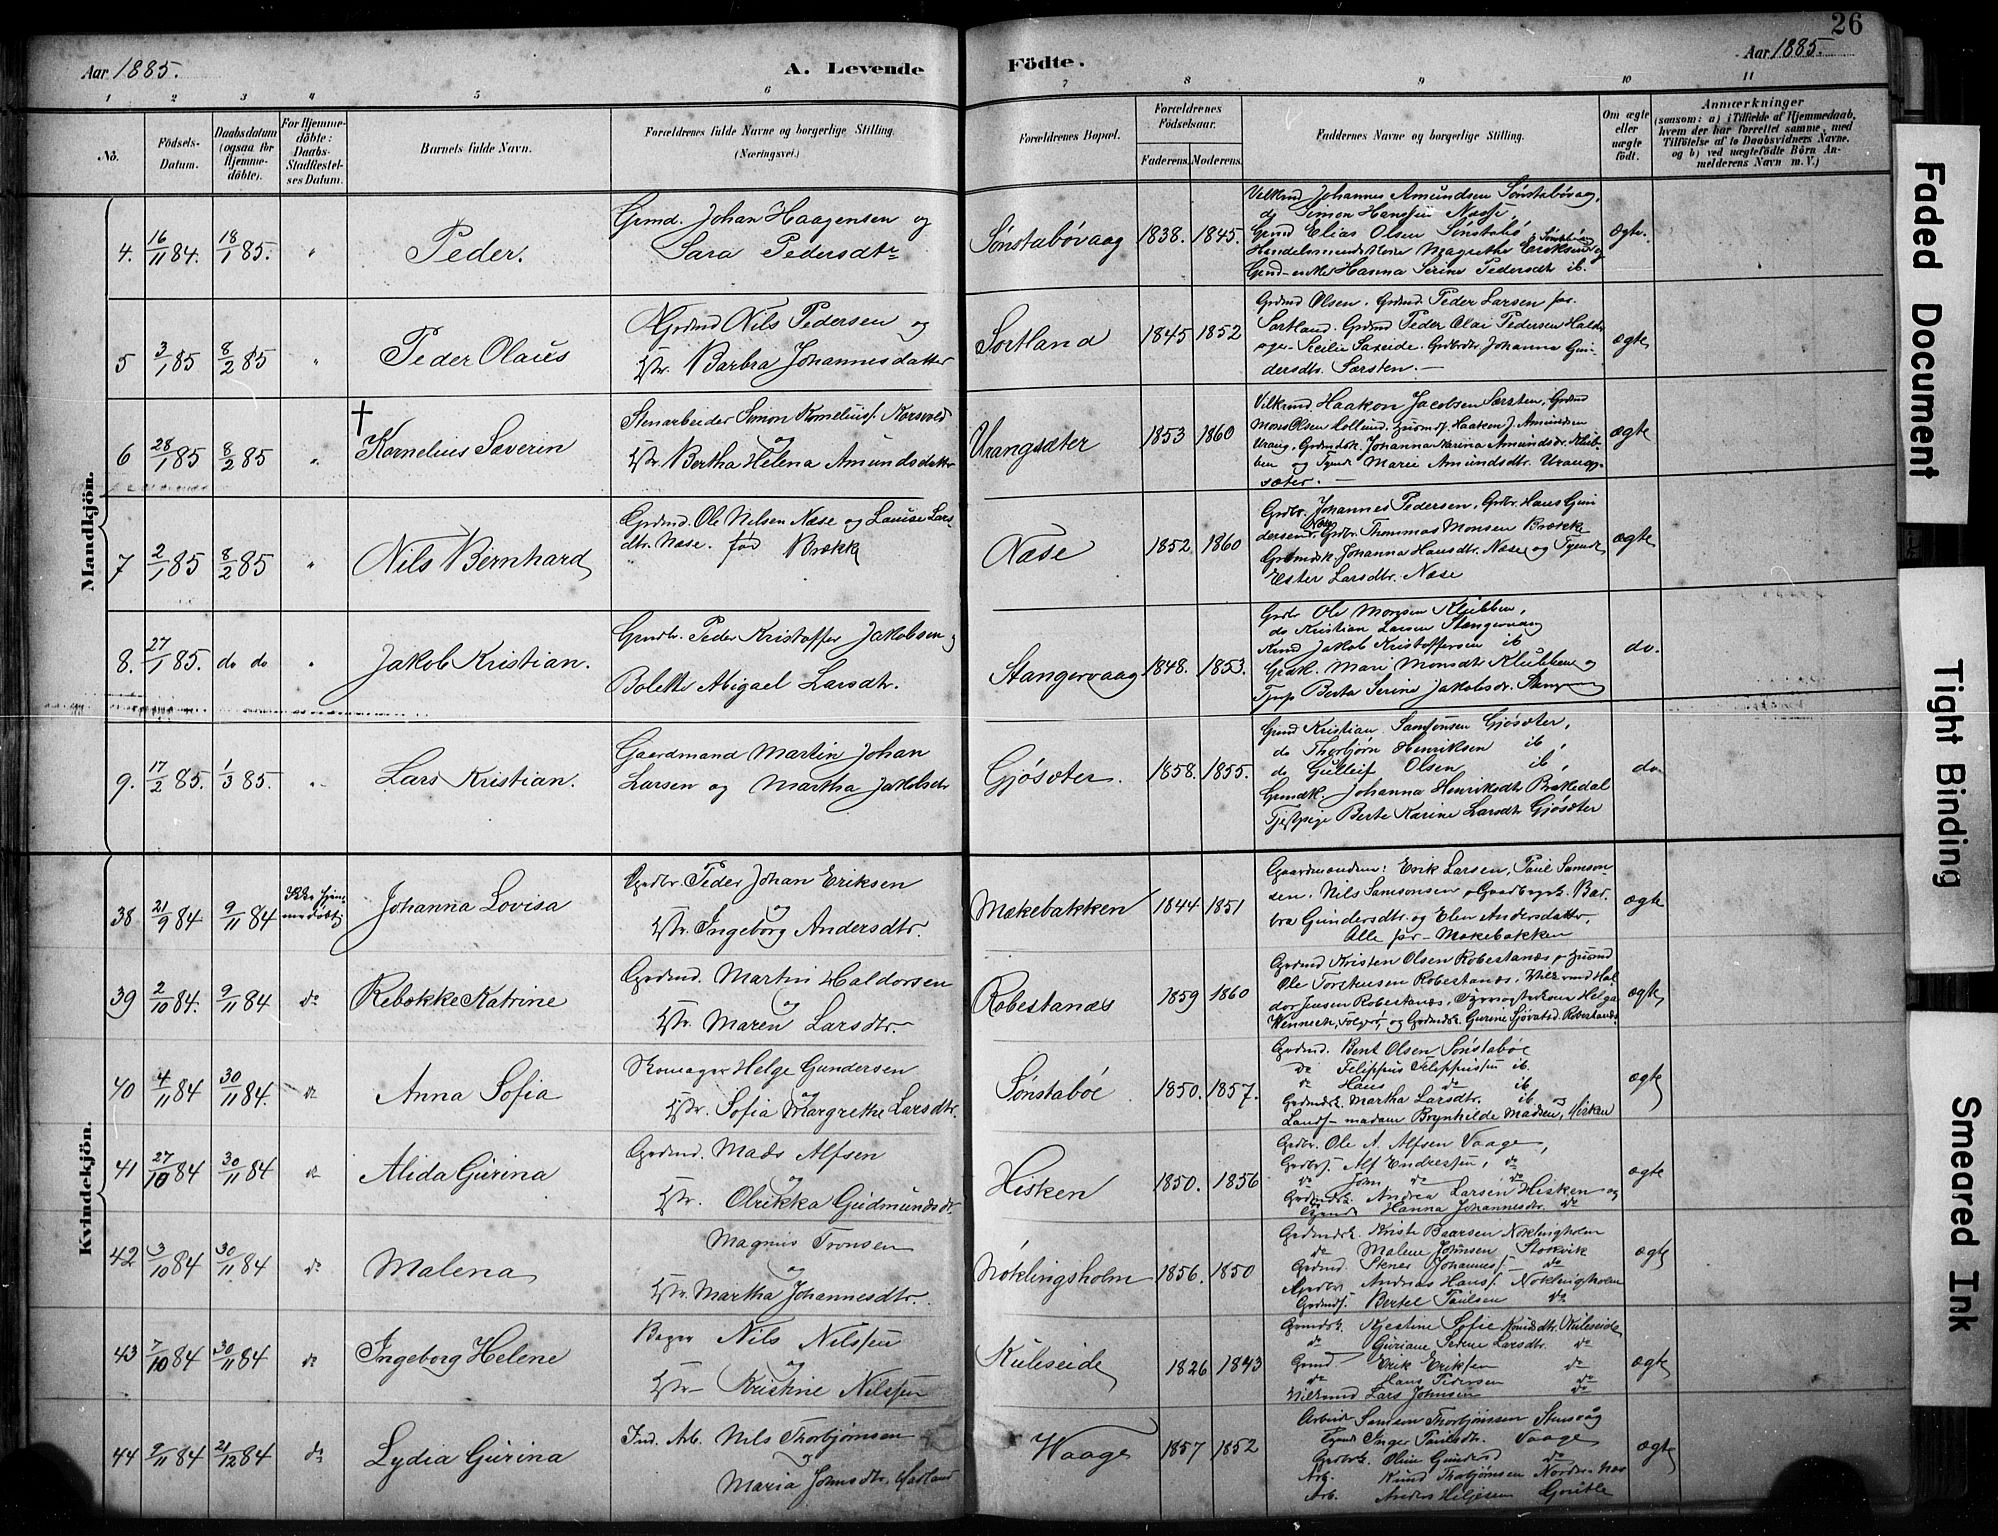 26
Aar 1885. A. Levende Födte. Aar 1885.
1 2 3 4 5 6 7 8 9 10 11
No.
Födsels-Datum.
Daabsdatum (ogsaa for Hjemme-döbte).
For Hjemme-döbte: Daabs-Stadfæstel-ses Datum.
Barnets fulde Navn.
Forældrenes fulde Navne og borgerlige Stilling.
(Næringsvei.)
Forældrenes Bopæl.
Forældrenes Födselsaar.
Faderens. Moderens.
Faddernes Navne og borgerlige Stilling.
Om ægte eller uægte födt.
Anmærkninger
(saasom: a) i Tilfælde af Hjemmedaab,
hvem der har forrettet samme, med
Tilföielse af to Daabsvidners Navne.
og b) ved uægtefödte Börn An-
melderens Navn m. V.)
Mandkjön.
4. 16/11 84. 18/1 85. " Peder.
Grmd. Johan Haagensen og
Sara Pedersdtr
Sønstabøvaag 1838. 1845.
Vilkmd Johannes Amundsen Sønstabøvaag,
do Simon Hansen Næse,
Grmd Elias Olsen Sønstabø
Magrethe
Hanna Serine Pedersdt ib.
ægte.
5 3/1 85 8/2 85 " Peder Olaus
Grdmd Nils Pedersen og
Hstr. Barbra Johannesdatter
Sortland 1845 1852
Grdmd Olsen. Grdmd. Peder Larsen
Sortland. Grdmd Peder Olai Pedersen
Johanna Gun-
dersdtr. Særsten. —
ægte
6 28/1 85 8/2 85 " † Kornelius Severin
Stenarbeider Simon Kornelius.
og
Hstr. Bertha Helena Amundsdatter
Urangsæter 1853 1860
Vilkmd. Haakon Jacobsen Særsten, Grdmd
Mons Olsen
Johanna Karina Amundsdr.
ben og Tjend Marie Amundsdtr. Urang-
sæter. —
ægte
7 2/1 85 8/2 85 " Nils Bernhard
Grdmd. Ole Nilsen Næse og Louise Lars-
dtr. Næse. før Brække
Næse 1852. 1860
Grdbr. Johannes Pedersen, Grdbr. Hans Gun-
dersen Næse, Grdbr. Thommas Monsen Brække
Grdmdsk. Johanna Hansdtr. Næse og Tjende
Ester Larsdtr. Næse
ægte
8. 27/1 85. do do " Jakob Kristian.
Grmdbr. Peder Kristoffer Jakobsen og
Bolette Abigael Larsdtr.
Stangervaag 1848. 1853.
Grdbr Ole Monsen Klubben,
do Kristian Larsen Stangervaag
Jakob Kristoffersen ib
Mari Monsdtr Klubben og
Berta Serine Jakobsdr.
do.
9. 17/2 85. 1/3 85. " Lars Kristian.
Gaardmand Martin Johan
Larsen og Martha Jakobsdr
Gjøsæter. 1858. 1855.
Grmd Kristian Samsonsen Gjøsæter,
do Thorbjørn Henriksen ib,
do Gulleif Olsen ib,
Grmdk. Johanna Henriksdt Brakedal
Tjestpige Berte Karine Larsdtr Gjøsæter
do
Kvindekjön.
38 21/9 84 9/11 84 Ikke hjem-medøbt Johanna Lovisa
Grdbr. Peder Johan Eriksen
og
Hstr. Ingeborg Andersdtr.
Møkebakken 1844 1851
Gaardmændene: Erik Larsen, Paul Samson-
sen, Nils Samsonsen, Bar-
bra Gundersdtr. og Elen Andersdatter,
Alle fra Møkebakken
ægte
39 2/10 84. 9/11 84 do Rebekke Katrine
Grdmd. Martin Haldorsen
og
Hstr. Maren Larsdtr.
Robestanæs 1859 1860
Grdmd Kristen Olsen Robestanæs,
Ole Torstensen Robestanæs, Vilkmnd Hal-
dor Jensen Robestanæs,
og Grdmdsk. Gurine
ægte,
40 4/11 84 30/11 84. do Anna Sofia
Helge Gundersen
og
Hstr. Sofia Margrethe Larsdtr.
Sønstabøe 1850. 1857.
Grdmd. Bent Olsen Sønstabøe
do Filippus Filippusen ib.
do Hans do ib
Grdmdsk. Martha Larsdtr. ib
madam Brynhilde Madsen, Hisken
ægte
41 27/10 84 30/11 84 do Alida Gurina
Grdmd. Mads Alfsen
og
Hstr. Olrikka Gudmundsdr.
Hisken 1850. 1856
Grdbr. Ole A. Alfsen Vaage,
Alf Endresen, do
do John do do
Grdmdsk. Andrea Larsen Hisken og
Tjend Hanna Johannesdtr. do
ægte
42 3/10 84 30/11 84 do Malena
Magnus Tronsen
og
Hstr. Martha Johannesdtr.
Nøklingsholm 1856. 1850
Grdmdsk. Kriste Baarsen Nøklingholm
do Malene Johnsen Stokvik
Grdmd. Stener Johannes. do
Andreas Hans. Nøklingholm
Bertel Paulsen do
ægte
43 7/10 84 30/11 84 do Ingeborg Helene
Nils Nilsen
og
Hstr. Kristine Nilssen
Kuleseide 1826 1843
Grmdsk. Sofie Knudsdtr. Kuleseide
do Guriane Larsdtr. do
Grmd. Erik Eriksen do
do Hans Pedersen do
Vilkmnd Lars Johnsen do
ægte
44 9/11 84 21/12 84 do Lydia Gurina
Ind. Arb. Nils Thorbjørnsen
og
Maria Johnsdtr.
Waage 1857 1852
Arbeidr Samson Thorbjørnssen Stensvåg
Tjend Inger Paulsdtr. Vaage
Oline
Arb. Knud Thorbjørnsen
Arb. Anders
ægte
Faded Document
Tight Binding
Smeared Ink